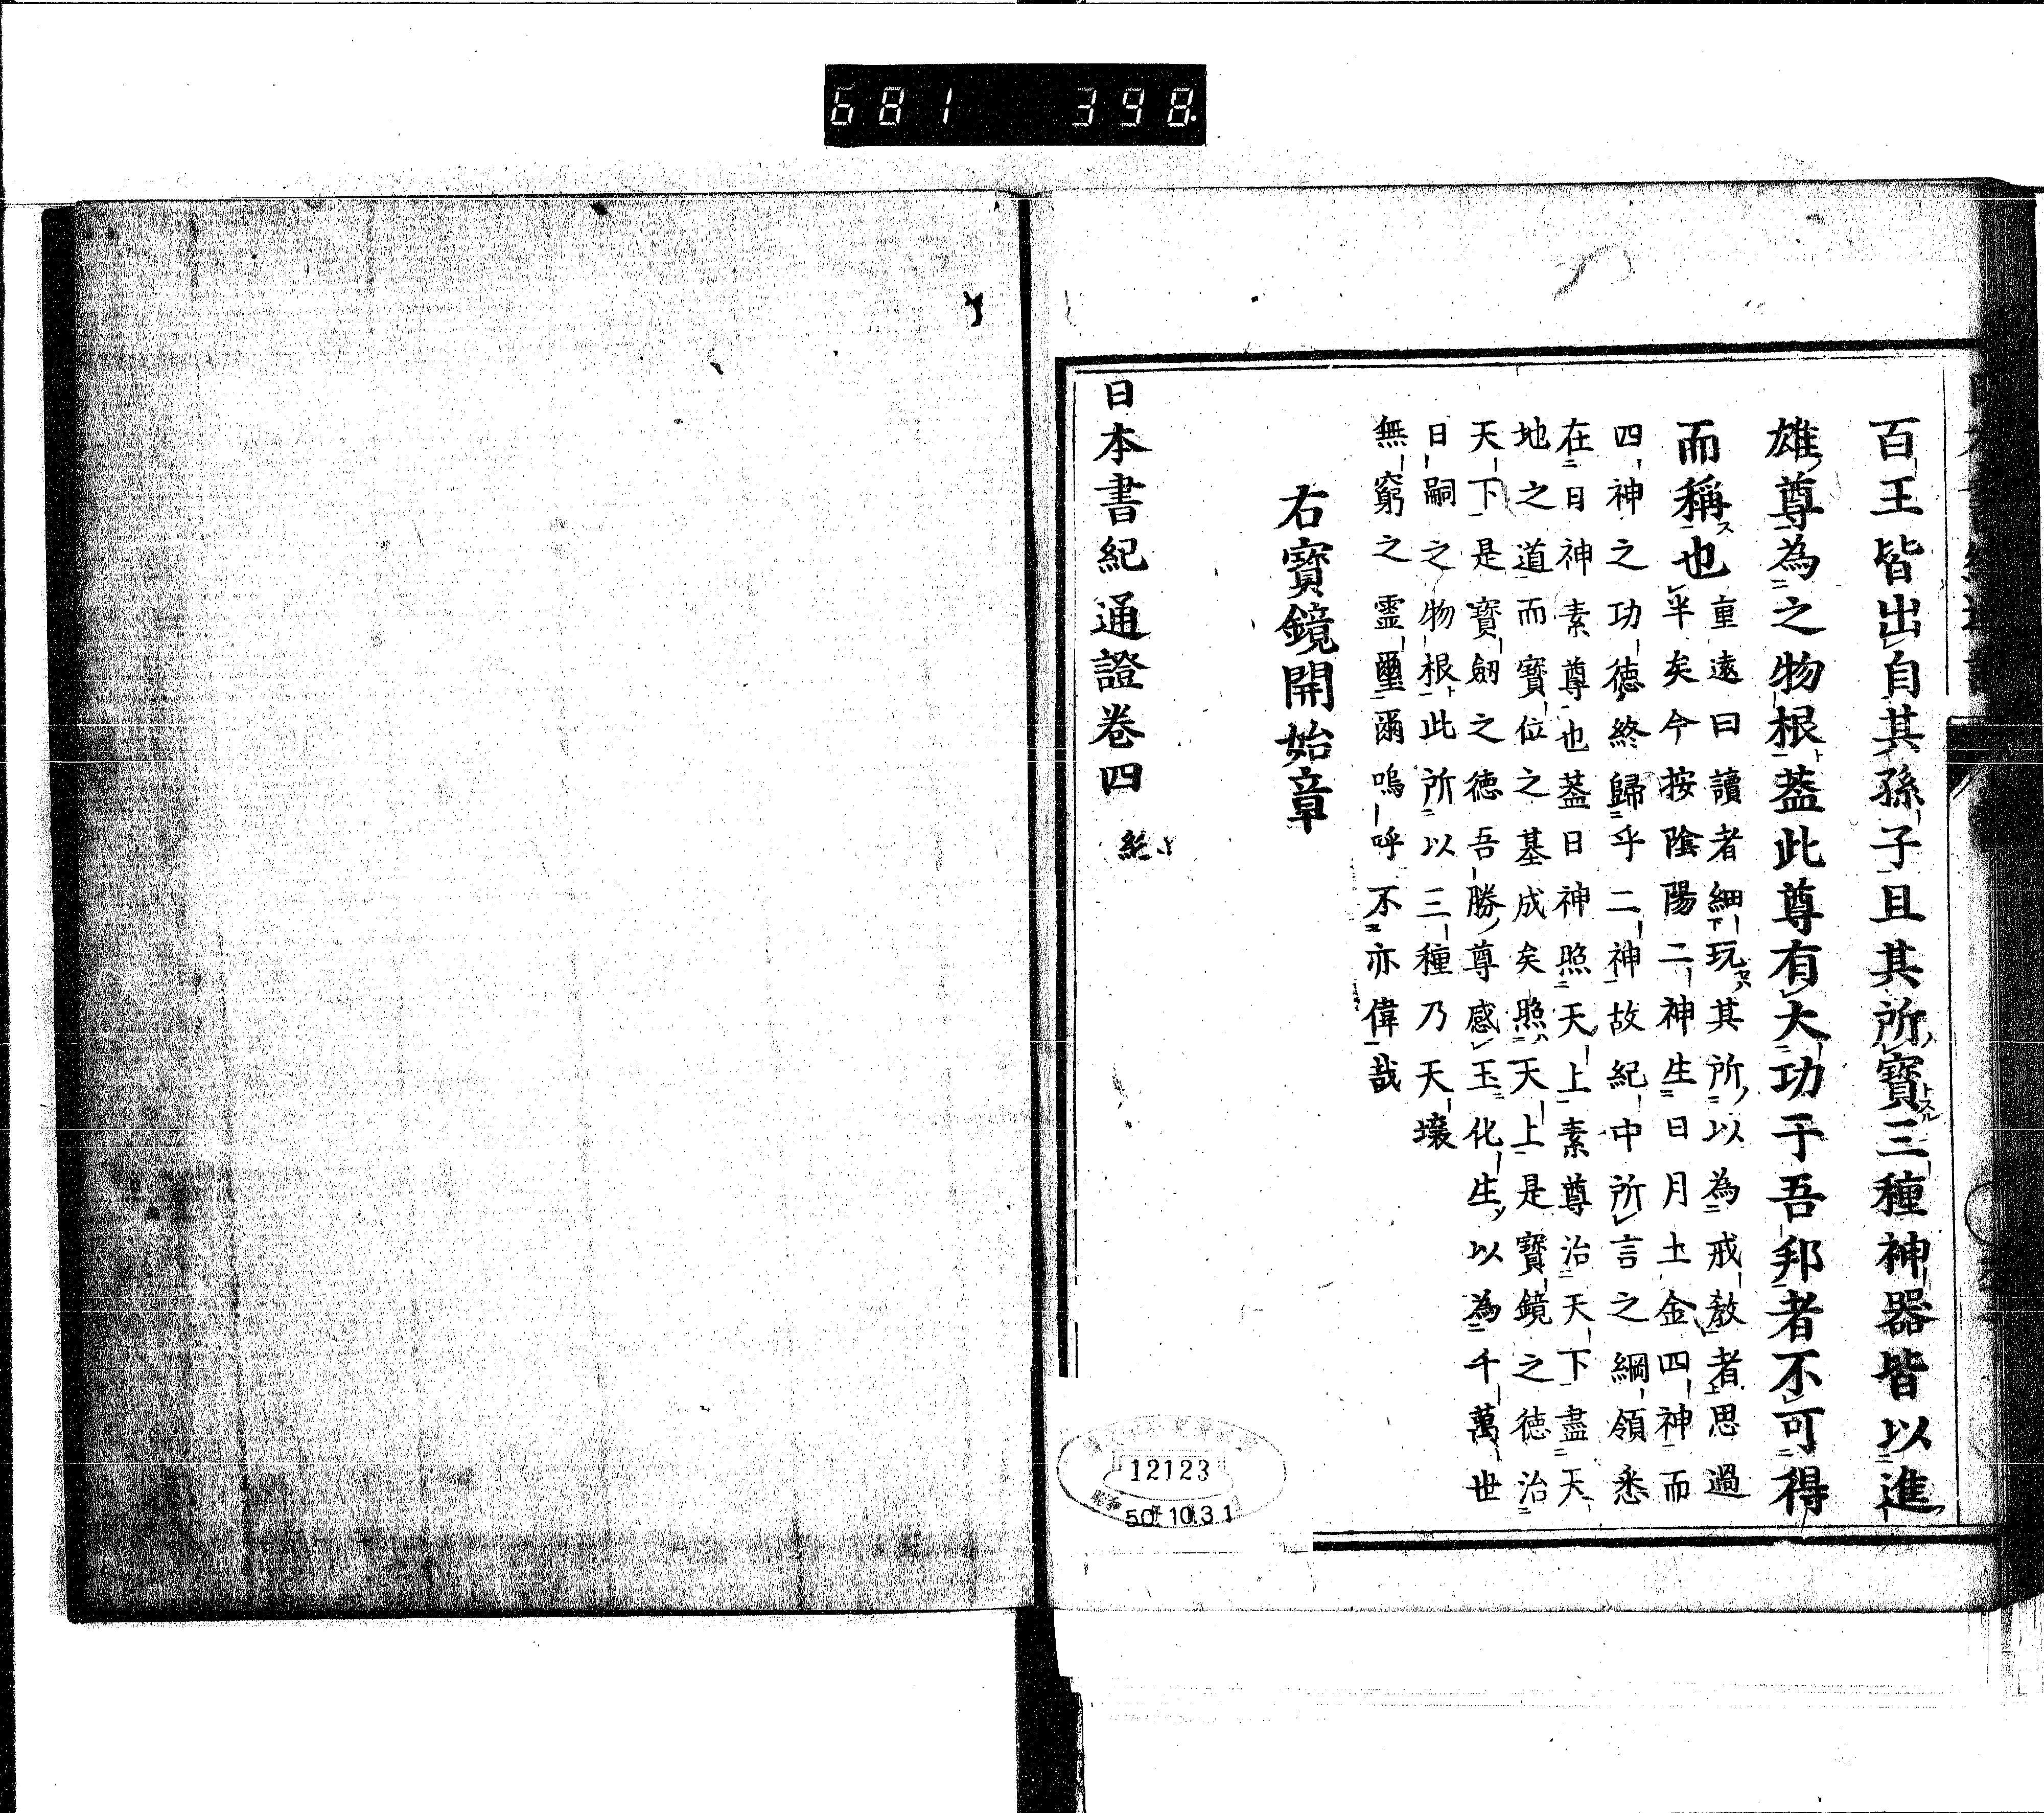 681 398
百王皆出自其孫子且其所寶三種神器皆以進
雄尊為之物根蓋此尊有大功于吾邦者不可得
而稱也
重遠曰讀者細玩其所以為戒教者思過
半矣今按陰陽二神生日月土金四神而
四神之功德終歸乎二神故紀中所言之綱領悉
在日神素尊也蓋日神照天上素尊治天下盡天
地之道而寶位之基成矣照天上是寶鏡之德治
天下是寶劒之德吾勝尊感玉化生以為千萬世
日嗣之物根此所以三種乃天壤
無窮之靈璽爾嗚呼不亦偉哉
右寶鏡開始章
日本書紀通證卷四 終
12123
50 10 31